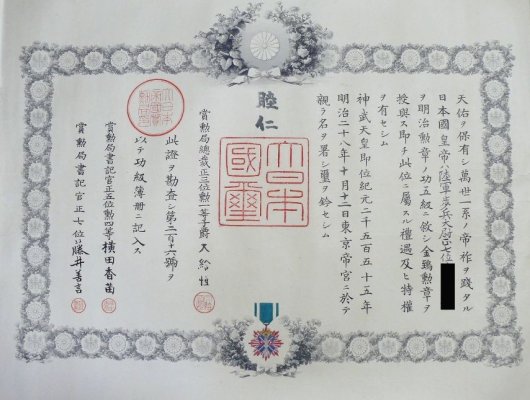 天佑ヲ保有シ萬世一系ノ帝祚ヲ踐タル
日本國皇帝ハ陸軍步兵大尉正七位
ヲ明治勲章ノ功五級ニ敘シ金鵄勲章ヲ
授與ス即チ此位ニ屬スル禮遇及ヒ特權
ヲ有セシム
神武天皇即位紀元二千五百五十五年
明治二十八年十月十二日東京帝宮ニ於テ
親ラ名ヲ署シ璽ヲ鈐セシム
睦仁
大日本國璽
賞勲局總裁正三位勲一等子爵大給恒
此證ヲ勘査シ第三百十六號ヲ
以テ功級簿册ニ記入ス
賞勲局書記官正五位勲四等橫田香苗
賞勲局書記官正七位藤井善言